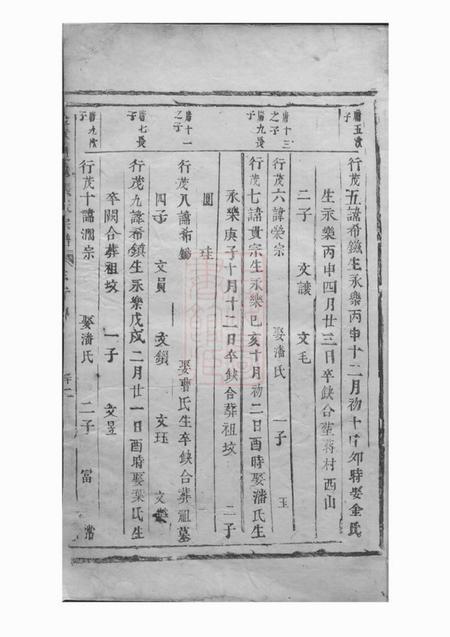 唐五次子
行茂五諱希鐵生永樂丙申十二月初十日卯時娶金氏
生永樂丙申四月廿三日卒缺合塟蔣村西山
二子 文護 文毛
唐十三之子
行茂六諱榮宗 娶潘氏 一子 玉
唐九長子
行茂七諱貴宗生永樂己亥十月初二日酉時娶潘氏生
永樂庚子十月十二日卒缺合葬祖坟 二子
圓 圭
唐十一之子
行茂八諱希錫 娶曹氏生卒缺合葬祖墓
四子 文員 文鎖 文珏
唐七長子
行茂九諱希鎮生永樂戊戌二月廿一日酉時娶葉氏生
卒闕合葬祖坟 一子 文昱
唐九次子
行茂十諱潤宗 娶潘氏 二子 富 常